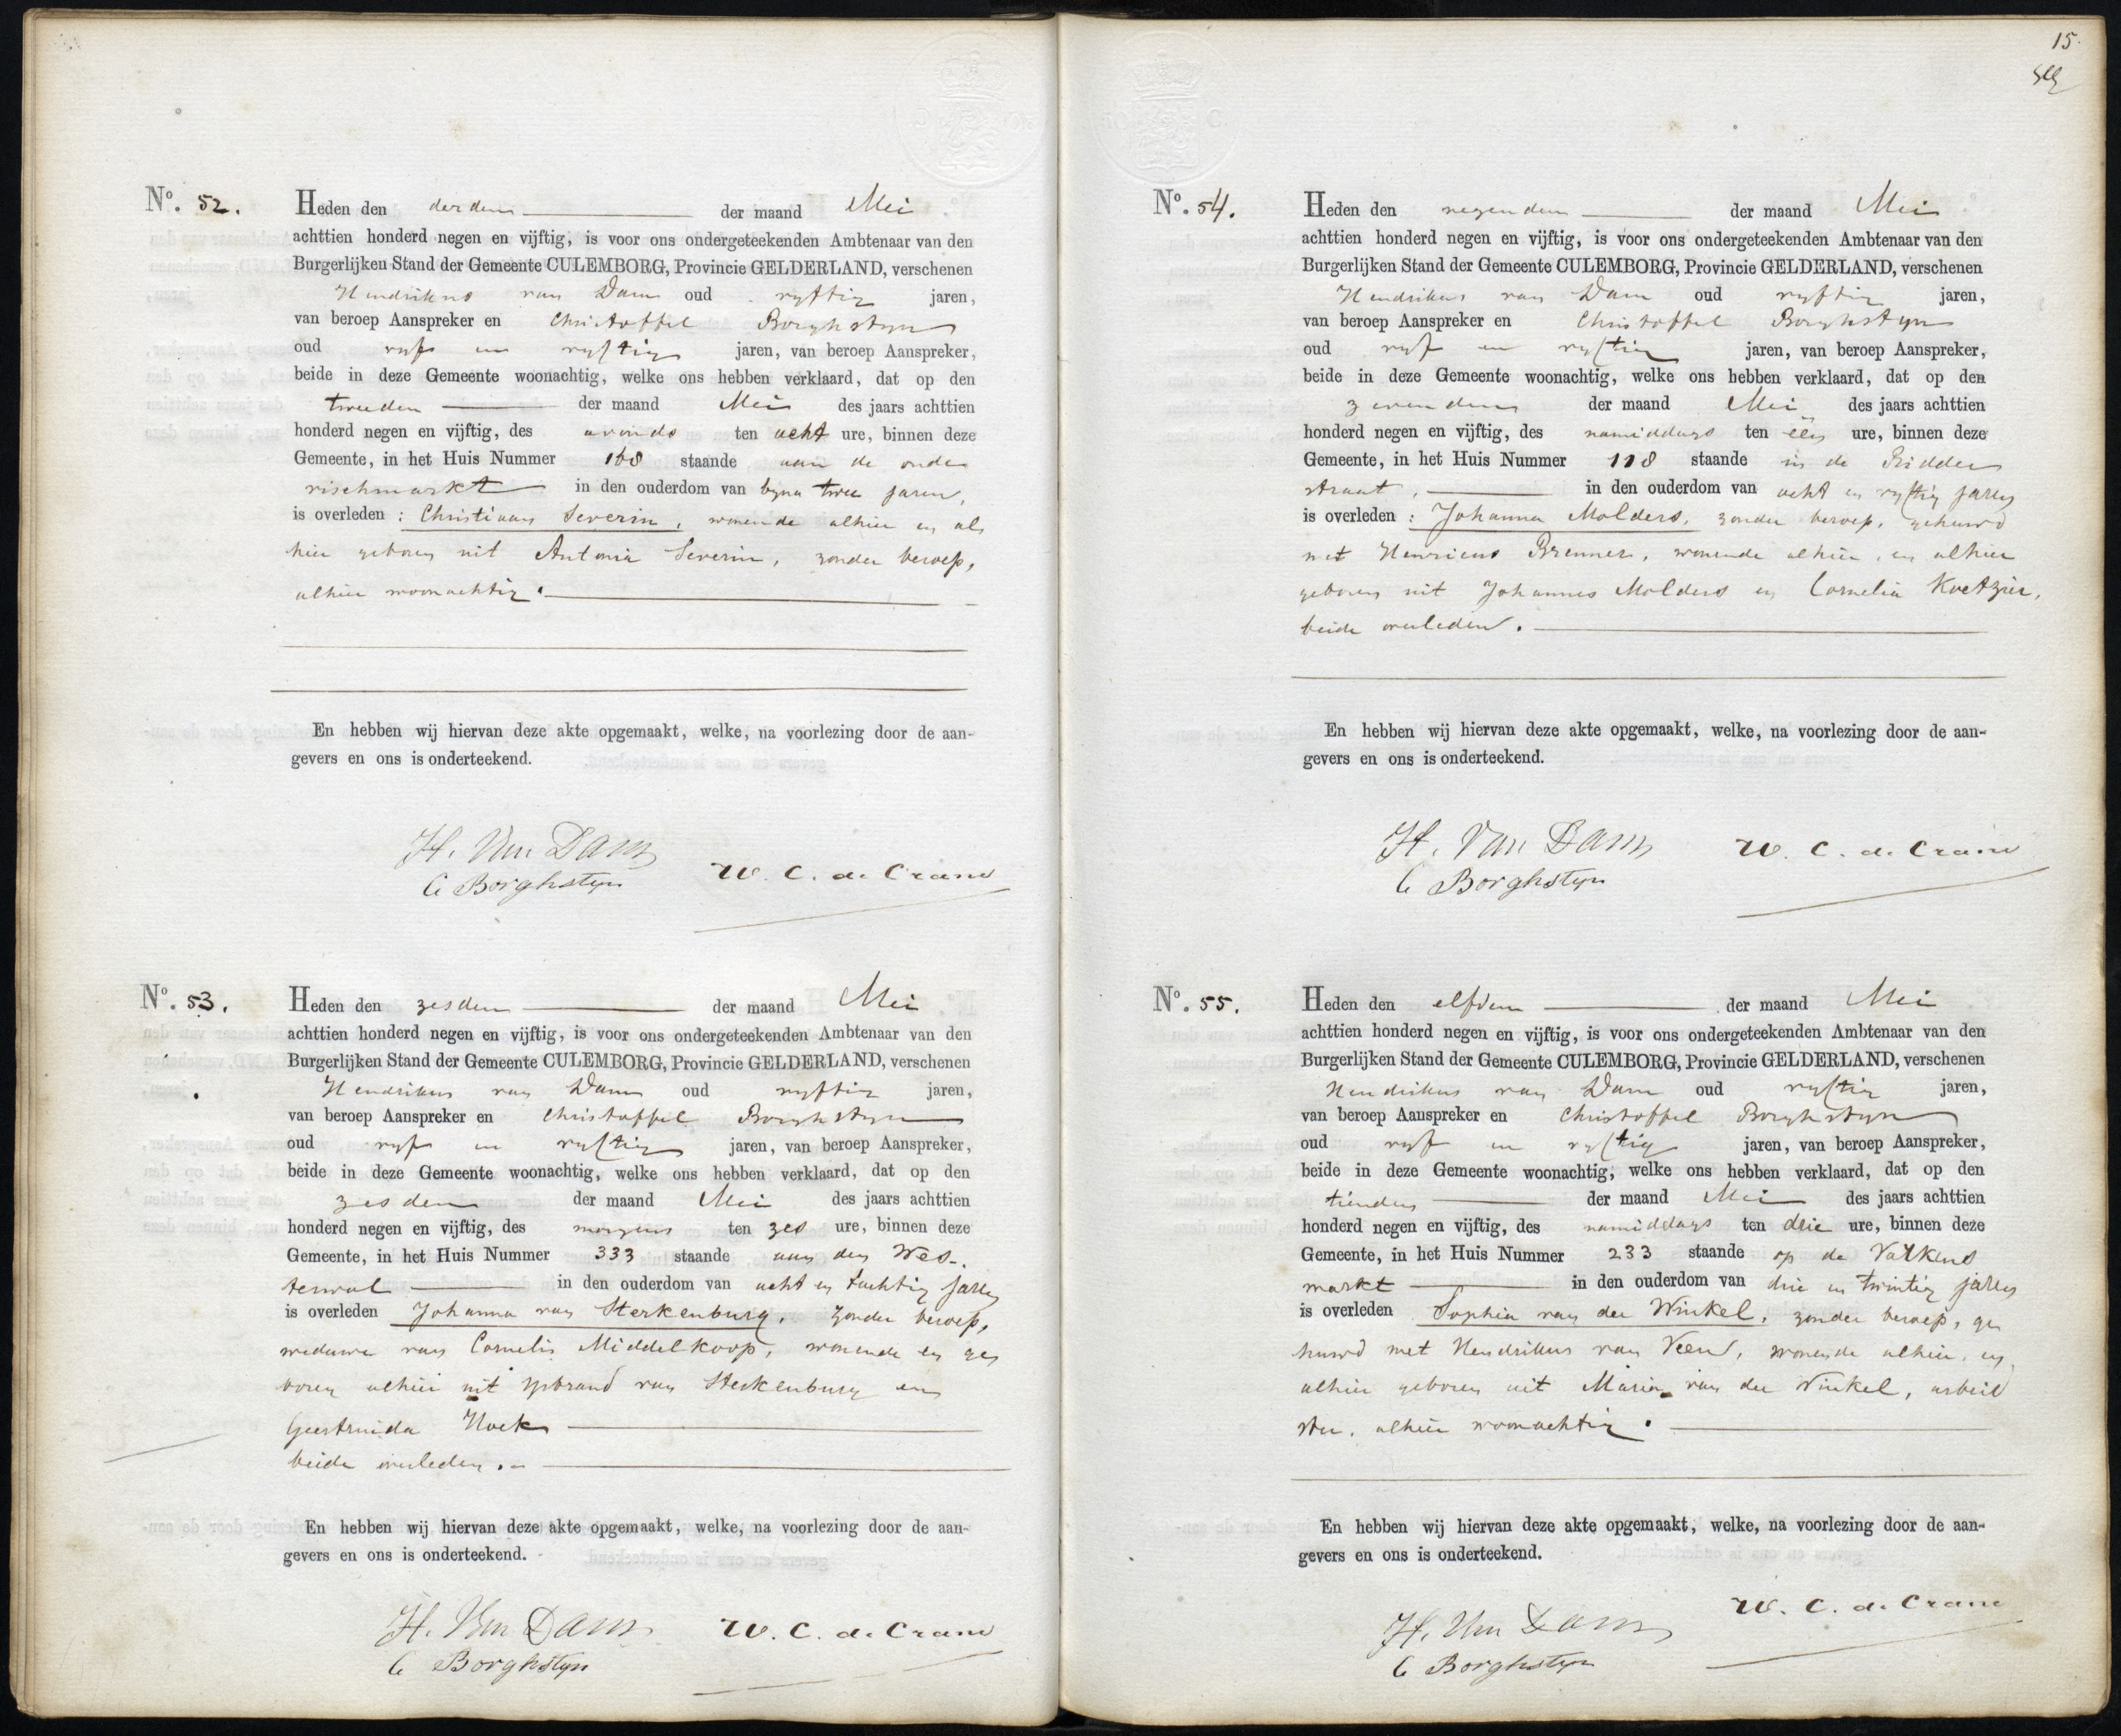 No. 52.
Heden den derden der maand Mei
achttien honderd negen en vijftig, is voor ons ondergeteekenden Ambtenaar van den
Burgerlijken Stand der Gemeente CULEMBORG, Provincie GELDERLAND, verschenen
Hendrikus van Dam oud vyftig jaren,
van beroep Aanspreker en Christoffel Borghstyn
oud vyf en vyftig jaren, van beroep Aanspreker,
beide in deze Gemeente woonachtig, welke ons hebben verklaard, dat op den
tweeden der maand Mei des jaars achttien
honderd negen en vijftig, des avonds ten acht ure, binnen deze
Gemeente, in het Huis Nummer 168 staande aan de oude
vischmarkt in den ouderdom van byna twee jaren,
is overleden : Christiaan Severin, wonende alhier en al
hier geboren uit Antonia Severin, zonder beroep,
alhier woonachtig.
En hebben wij hiervan deze akte opgemaakt, welke, na voorlezing door de aan-
gevers en ons is onderteekend.
H. Van Dam
C Borghstyn
W. C. de Crane
No. 53.
Heden den zesden der maand Mei
achttien honderd negen en vijftig, is voor ons ondergeteekenden Ambtenaar van den
Burgerlijken Stand der Gemeente CULEMBORG, Provincie GELDERLAND, verschenen
Hendrikus van Dam oud vyftig jaren,
van beroep Aanspreker en Christoffel Borghstyn
oud vyf en vyftig jaren, van beroep Aanspreker,
beide in deze Gemeente woonachtig, welke ons hebben verklaard, dat op den
zesden der maand Mei des jaars achttien
honderd negen en vijftig, des morgens ten zes ure, binnen deze
Gemeente, in het Huis Nummer 333 staande aan den Wes-
terwal in den ouderdom van acht en tachtig jaren
is overleden Johanna van Sterkenburg, zonder beroep,
weduwe van Cornelis Middelkoop, wonende en ge
boren alhier uit Ysbrand van Sterkenburg en
Geertruida Hoek
beide overleden.
En hebben wij hiervan deze akte opgemaakt, welke, na voorlezing door de aan-
gevers en ons is onderteekend.
H. Van Dam
C Borghstyn
W. C. de Crane
15.
No. 54.
Heden den negenden der maand Mei
achttien honderd negen en vijftig, is voor ons ondergeteekenden Ambtenaar van den
Burgerlijken Stand der Gemeente CULEMBORG, Provincie GELDERLAND, verschenen
Hendrikus van Dam oud vyftig jaren,
van beroep Aanspreker en Christoffel Borghstyn
oud vyf en vyftig jaren, van beroep Aanspreker,
beide in deze Gemeente woonachtig, welke ons hebben verklaard, dat op den
zevenden der maand Mei des jaars achttien
honderd negen en vijftig, des namiddags ten één ure, binnen deze
Gemeente, in het Huis Nummer 118 staande in de Ridder
straat, in den ouderdom van acht en vyftig jaren
is overleden : Johanna Molders, zonder beroep, gehuwd
met Henricus Brenner, wonende alhier, en alhier
geboren uit Johannes Molders en Cornelia Koetzier,
beide overleden.
En hebben wij hiervan deze akte opgemaakt, welke, na voorlezing door de aan-
gevers en ons is onderteekend.
H. Van Dam
C Borghstyn
W. C. de Crane
No. 55.
Heden den elfden der maand Mei
achttien honderd negen en vijftig, is voor ons ondergeteekenden Ambtenaar van den
Burgerlijken Stand der Gemeente CULEMBORG, Provincie GELDERLAND, verschenen
Hendrikus van Dam oud vyftig jaren,
van beroep Aanspreker en Christoffel Borghstyn
oud vyf en vyftig jaren, van beroep Aanspreker,
beide in deze Gemeente woonachtig, welke ons hebben verklaard, dat op den
tienden der maand Mei des jaars achttien
honderd negen en vijftig, des namiddags ten drie ure, binnen deze
Gemeente, in het Huis Nummer 233 staande op de Varkens
markt in den ouderdom van drie en twintig jaren
is overleden Sophia van der Winkel, zonder beroep, ge
huwd met Hendrikus van Veen, wonende alhier, en
alhier geboren uit Maria van der Winkel, arbeid
ster, alhier woonachtig.
En hebben wij hiervan deze akte opgemaakt, welke, na voorlezing door de aan-
gevers en ons is onderteekend.
H. Van Dam
C Borghstyn
W. C. de Crane